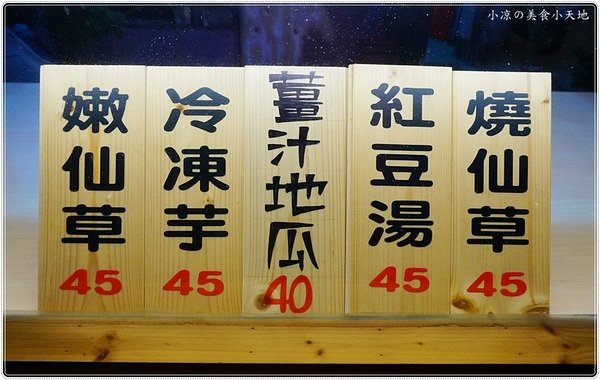 小涼の美食小天地
嫩仙草
45
冷凍芋
45
薑汁地瓜
40
紅豆湯
45
燒仙草
45